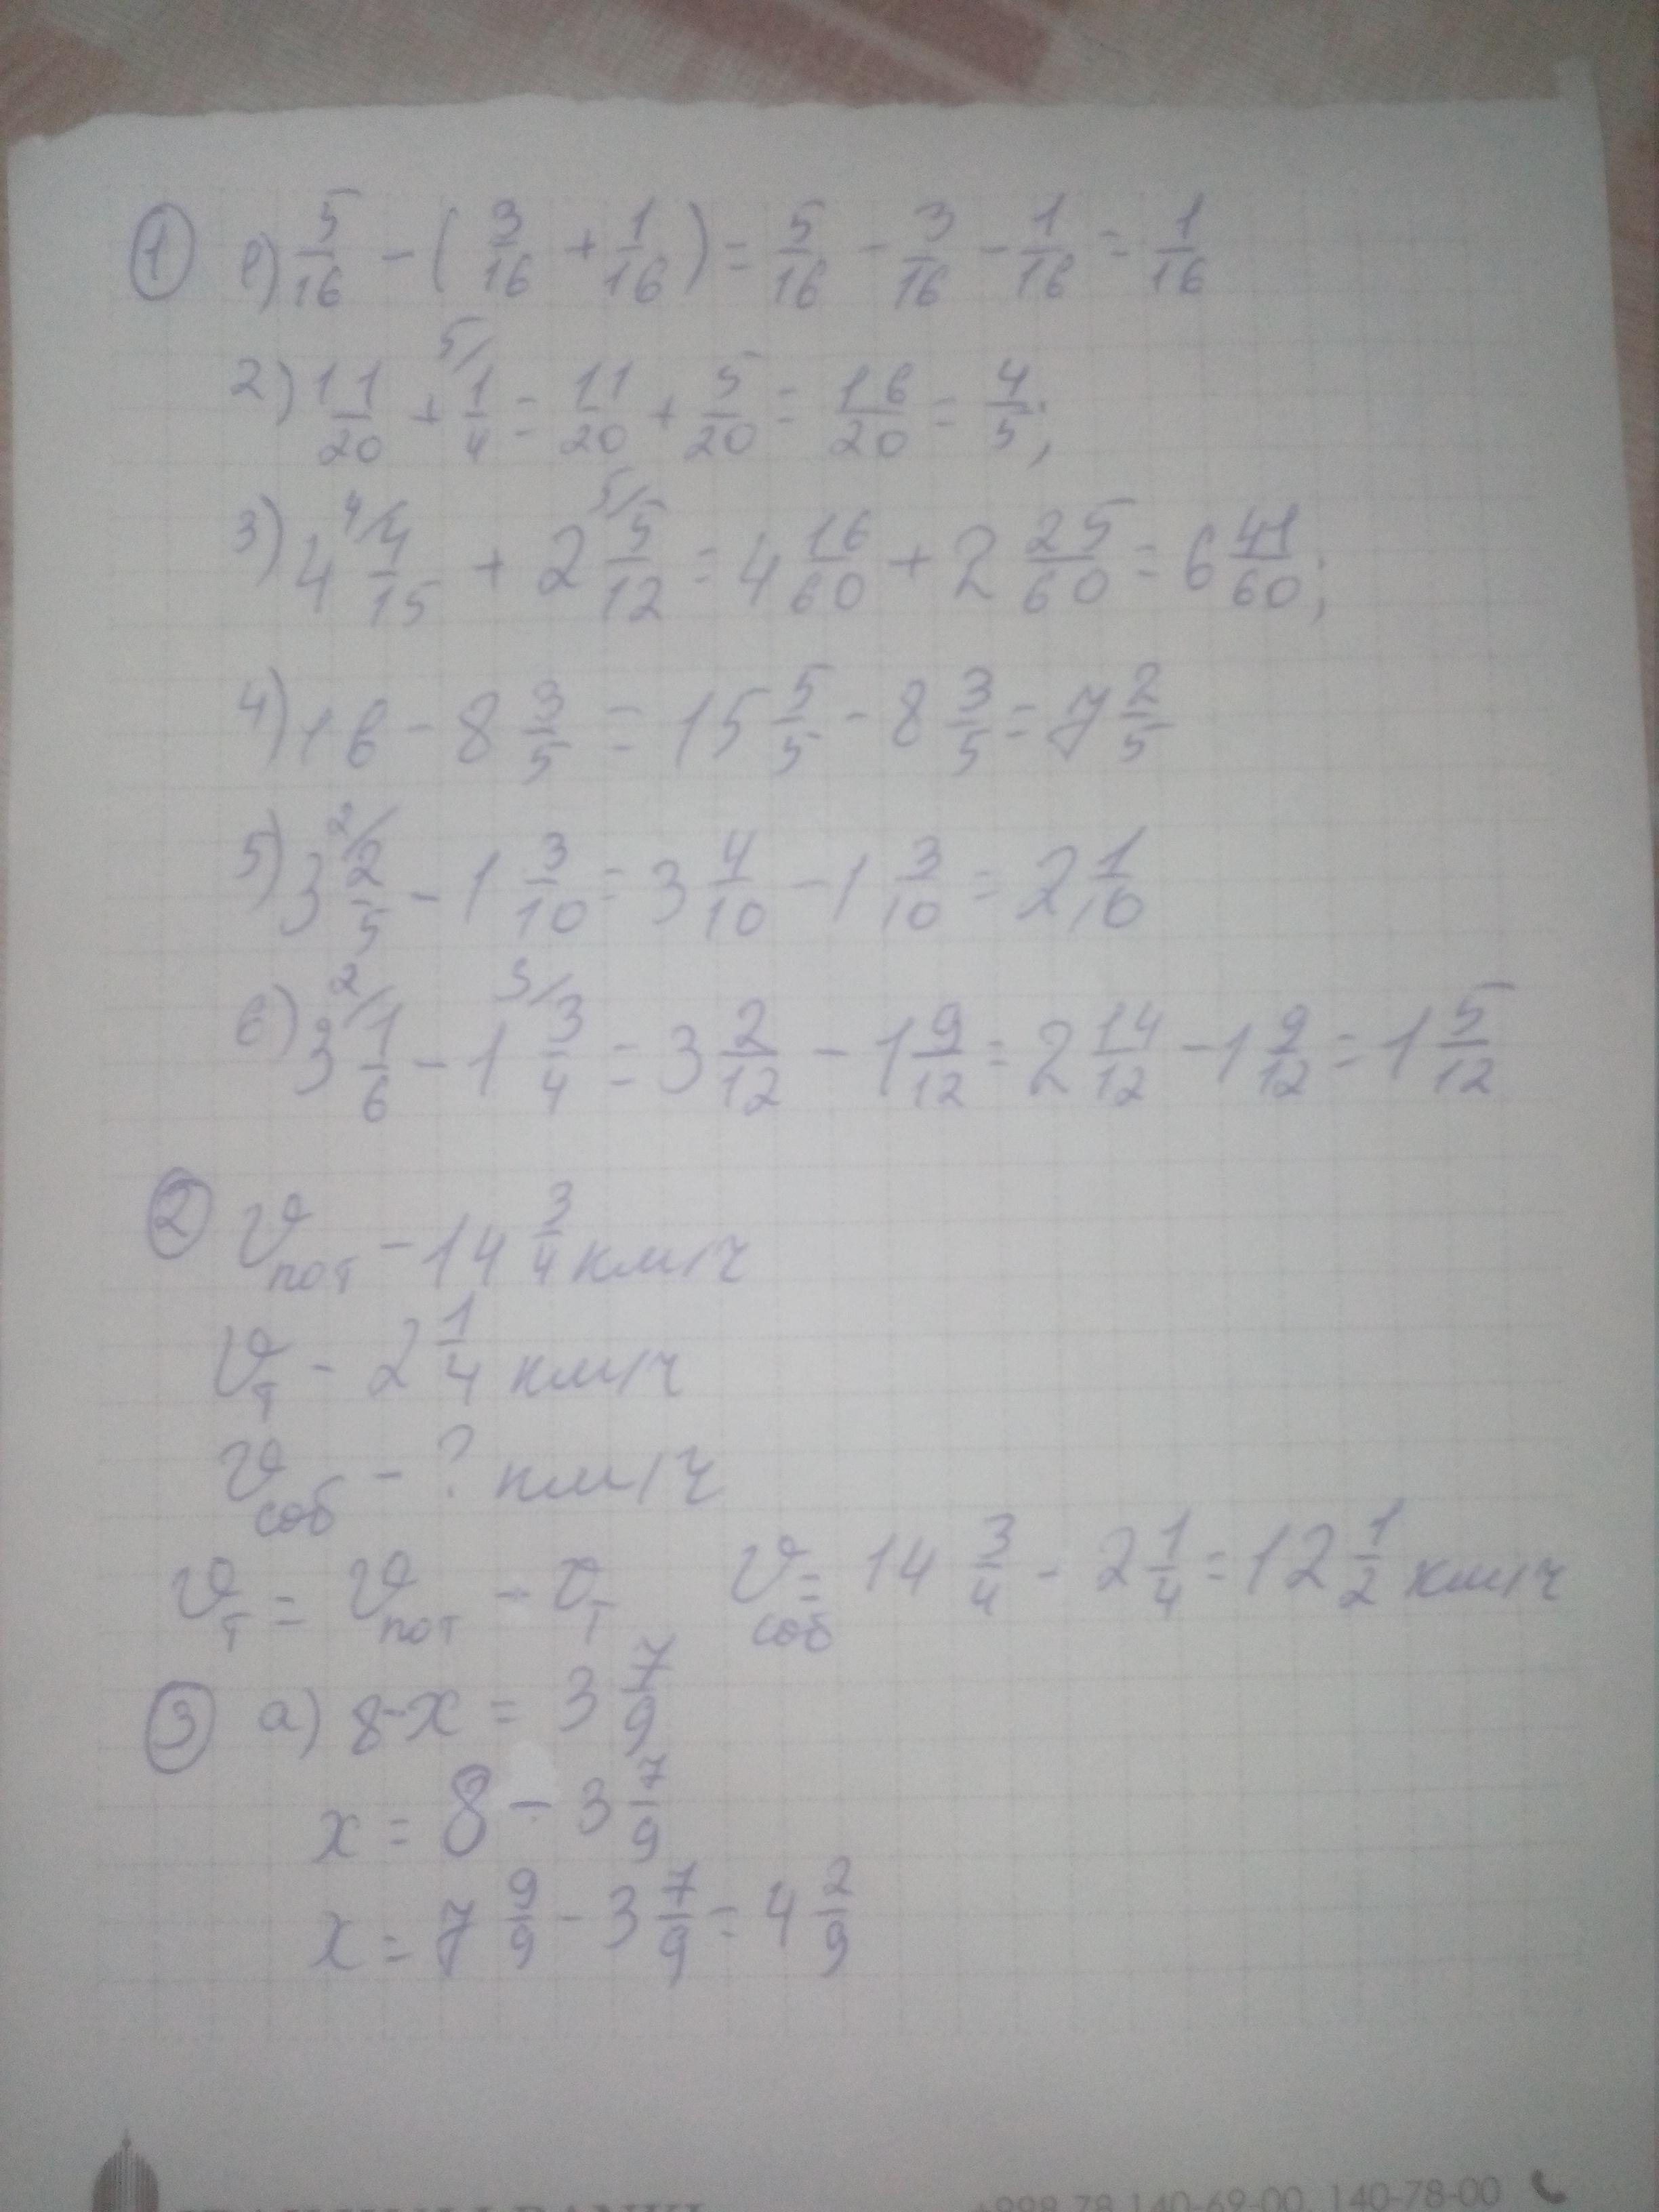 ① 1) 5/16 - (3/16 + 1/16) = 5/16 - 3/16 - 1/16 = 1/16
2) 11/20 + ⁵⁄ 1/4 = 11/20 + 5/20 = 16/20 = 4/5;
3) 4 ⁴⁄ 4/15 + 2 ⁵⁄ 5/12 = 4 16/60 + 2 25/60 = 6 41/60;
4) 16 - 8 3/5 = 15 5/5 - 8 3/5 = 7 2/5
5) 3 ²⁄ 2/5 - 1 3/10 = 3 4/10 - 1 3/10 = 2 1/10
6) 3 ²⁄ 1/6 - 1 ³⁄ 3/4 = 3 2/12 - 1 9/12 = 2 14/12 - 1 9/12 = 1 5/12
② v пот - 14 3/4 км/ч
v т - 2 1/4 км/ч
v соб - ? км/ч
v т = v пот - v т v соб = 14 3/4 - 2 1/4 = 12 1/2 км/ч
③ а) 8-x = 3 7/9
x = 8 - 3 7/9
x = 7 9/9 - 3 7/9 = 4 2/9
+998 78 140-69-00, 140-78-00